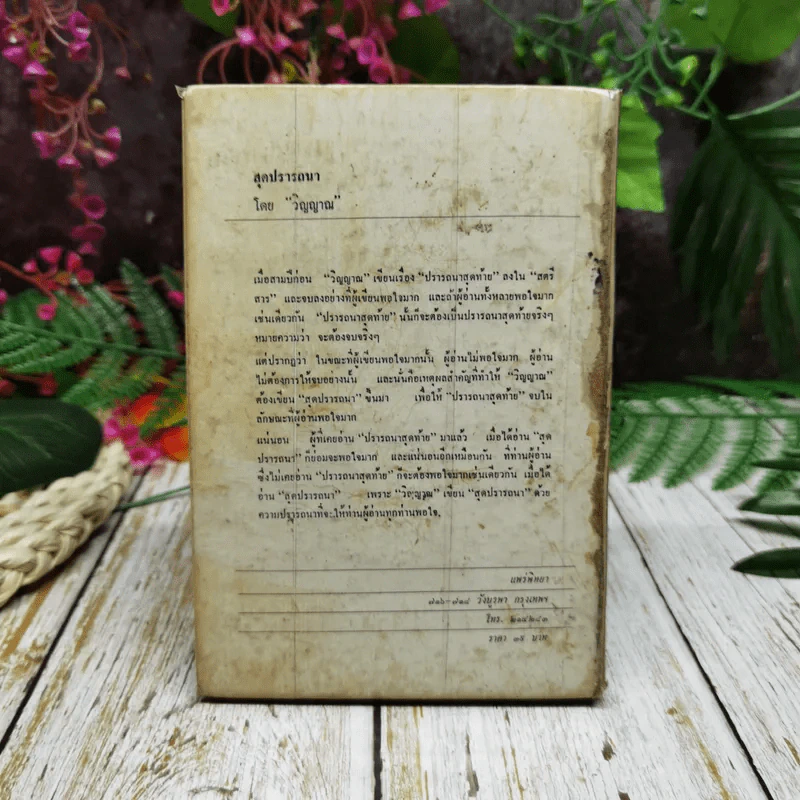 สุดปรารถนา
โดย "วิญญาณ"
เมื่อสามปีก่อน "วิญญาณ" เขียนเรื่อง "ปรารถนาสุดท้าย" ลงใน "สตรี
สาร" และจบลงอย่างที่ผู้เขียนพอใจมาก และถ้าผู้อ่านทั้งหลายพอใจมาก
เช่นเดียวกัน "ปรารถนาสุดท้าย" นั้นก็จะต้องเป็นปรารถนาสุดท้ายจริงๆ
หมายความว่า จะต้องจบจริงๆ
แต่ปรากฏว่า ในขณะที่ผู้เขียนพอใจมากนั้น ผู้อ่านไม่พอใจมาก ผู้อ่าน
ไม่ต้องการให้จบอย่างนั้น และนั่นคือเหตุผลสำคัญที่ทำให้ "วิญญาณ"
ต้องเขียน "สุดปรารถนา" ขึ้นมา เพื่อให้ "ปรารถนาสุดท้าย" จบใน
ลักษณะที่ผู้อ่านพอใจมาก
แน่นอน ผู้ที่เคยอ่าน "ปรารถนาสุดท้าย" มาแล้ว เมื่อได้อ่าน "สุด
ปรารถนา" ก็ย่อมจะพอใจมาก และแน่นอนอีกเหมือนกัน ที่ท่านผู้อ่าน
ซึ่งไม่เคยอ่าน "ปรารถนาสุดท้าย" ก็จะต้องพอใจมากเช่นเดียวกัน เมื่อได้
อ่าน "สุดปรารถนา" เพราะ "วิญญาณ" เขียน "สุดปรารถนา" ด้วย
ความปรารถนาที่จะให้ท่านผู้อ่านทุกท่านพอใจ.
แพร่พิทยา
๗๑๖-๗๑๘ วังบูรพา กรุงเทพฯ
โทร.
ราคา ๓๕ บาท